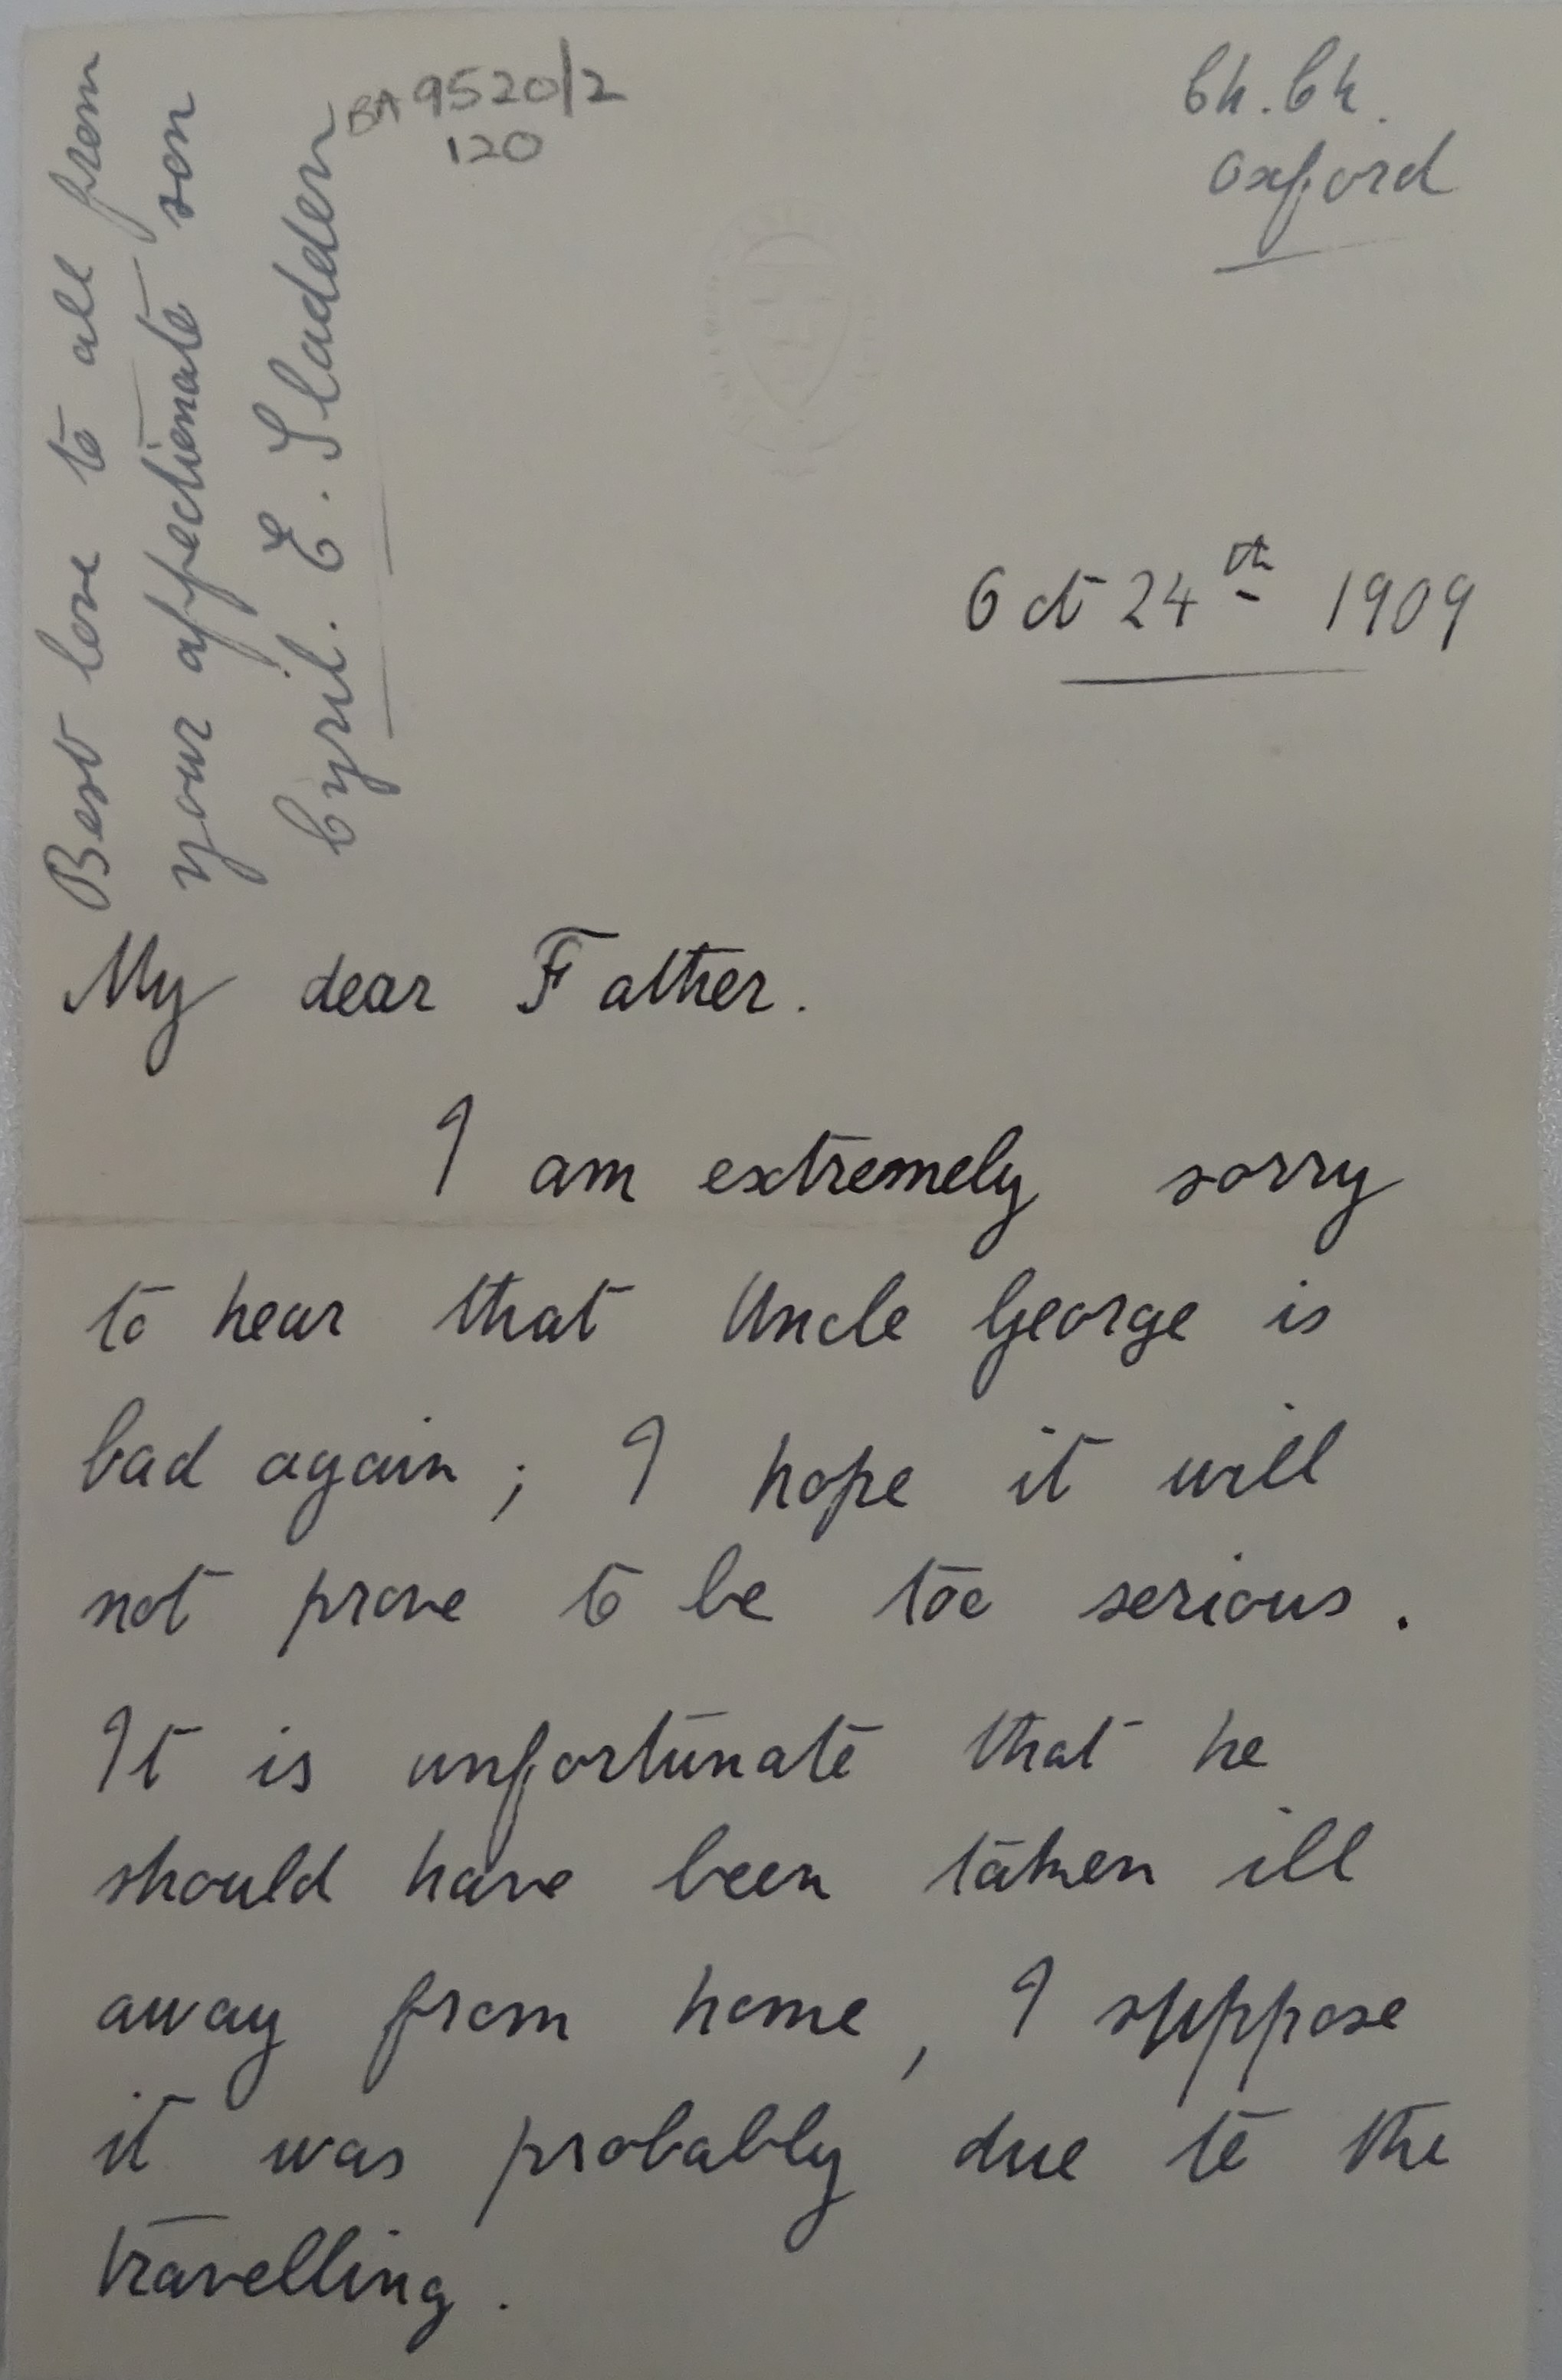 BA 9520/2
120
Ch. Ch.
Oxford
Oct 24th 1909
My dear Father.
I am extremely sorry
to hear that Uncle George is
bad again; I hope it will
not prove to be too serious.
It is unfortunate that he
should have been taken ill
away from home, I suppose
it was probably due to the
travelling.
Best love to all from
your affectionate son
Cyril. E. Sladden